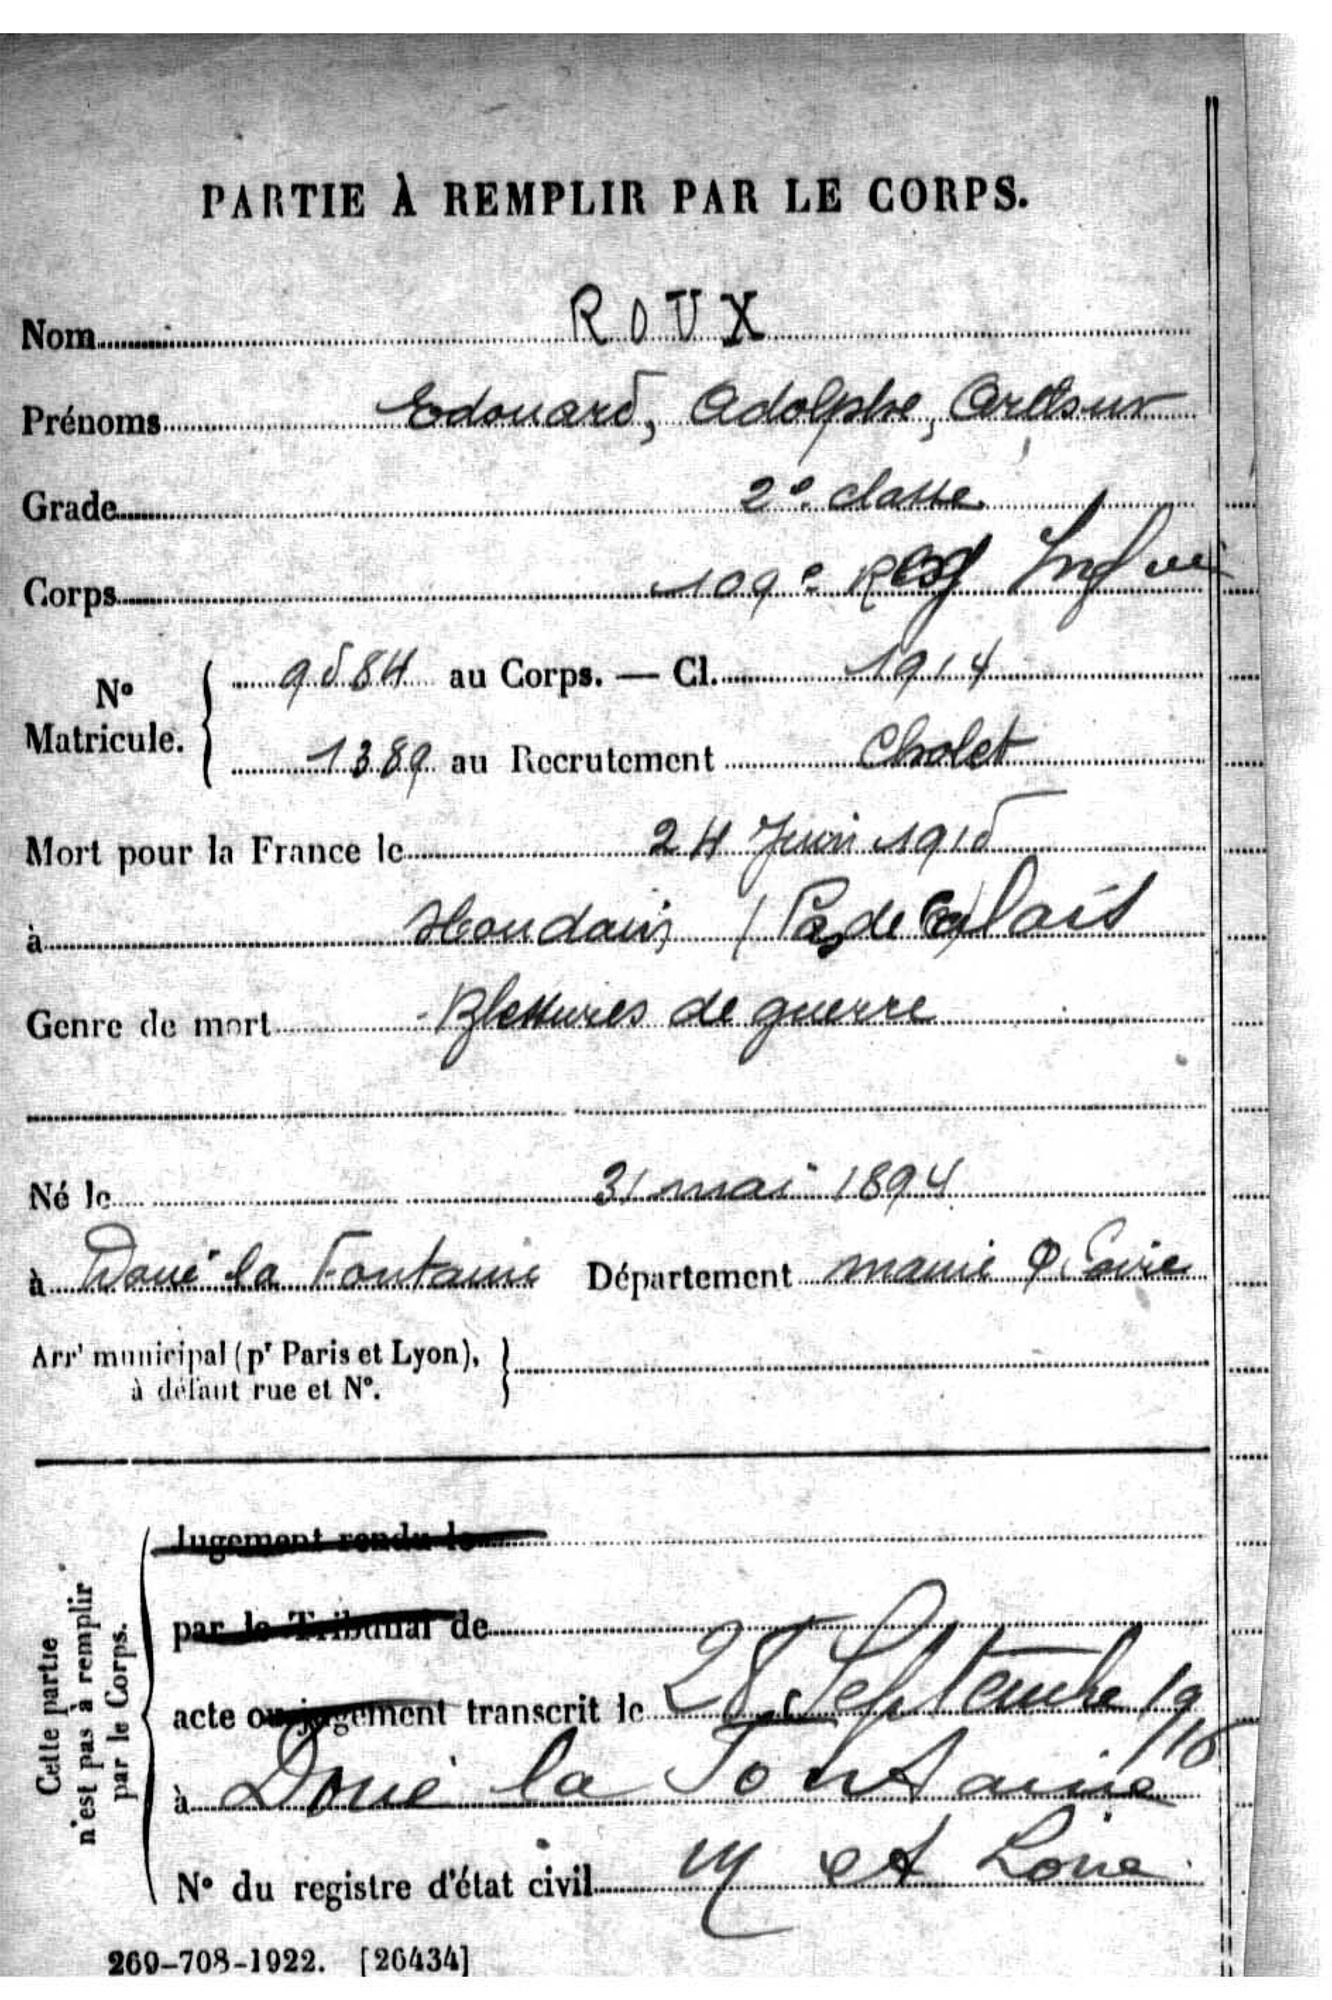 PARTIE À REMPLIR PAR LE CORPS.
Nom ROUX
Prénoms Edouard, Adolphe, Arthur
Grade 2e classe
Corps 109e Reg Inf rie
No Maticule. 9584 au Corps. — Cl. 1914
1389 au Recrutement Cholet
Mort pour la France le 24 Juin 1915
à Houdain (Pas de Calais
Genre de mort Blessures de guerre
Né le 31 mai 1894
à Doué la Fontaine Département Maine & Loire
Arrt municipal (pr Paris et Lyon), à défaut rue et No.
Cette partie n'est pas à remplir par le Corps.
Jugement rendu le
par le Tribunal de
acte ou jugement transcrit le 28 Septembre 1915
à Doué la Fontaine
No du registre d'état civil M et Loire
269-708-1922. [26434]